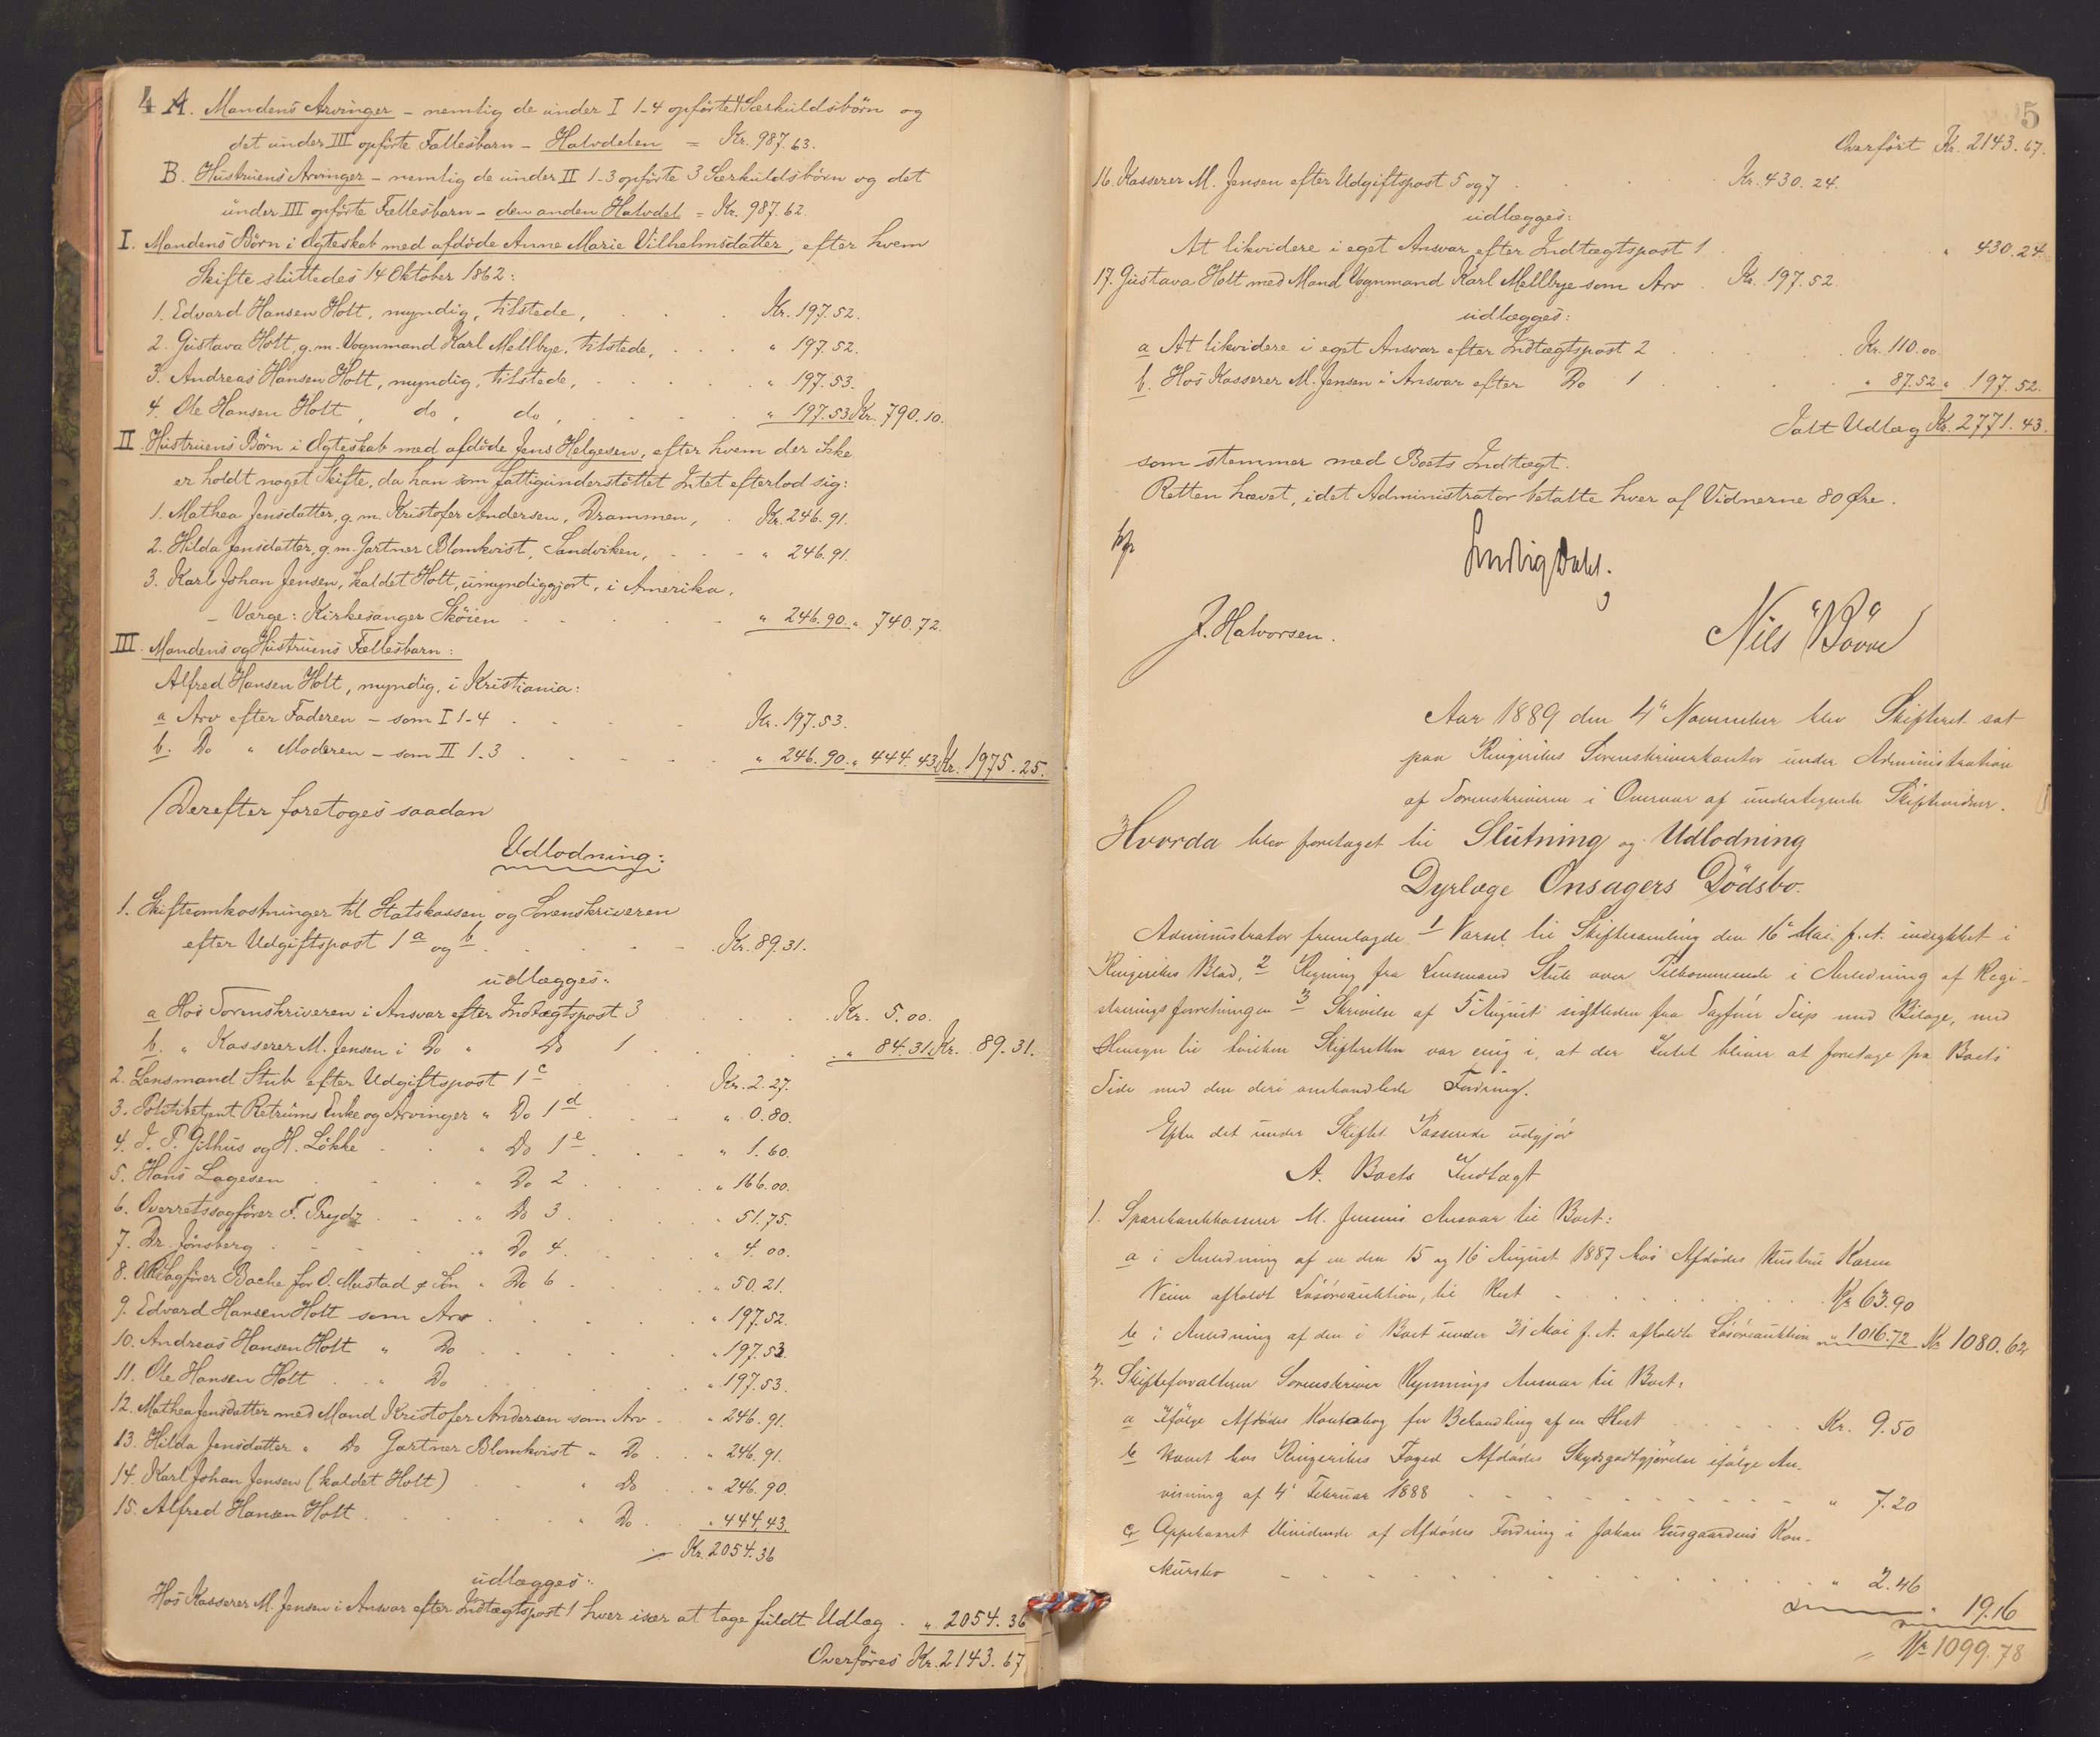 4 A. Mandens Arvinger - nemlig de under I 1-4 opförte 4 Særkuldsbörn og
det under III opförte Fællesbarn - Halvdelen = Kr. 987.63.
B. Hustruens Arvinger - nemlig de under II 1-3 opförte 3 Særkuldsbörn og det
under III opförte Fællesbarn - den anden Halvdel = Kr. 987.62.
I. Mandens Börn i Ægteskab med afdöde Anne Marie Vilhelmsdatter, efter hvem
Skifte sluttedes 14 Oktober 1862:
1. Edvard Hansen Holt, myndig, tilstede, Kr. 197.52.
2. Gustava Holt, g.m. Vognmand Karl Mellbye, tilstede, " 197.52.
3. Andreas Hansen Holt, myndig, tilstede, " 197.53.
4. Ole Hansen Holt, do, do, " 197.53 Kr. 790.10.
II. Hustruens Börn i Ægteskab med afdöde Jens Helgesen, efter hvem der ikke
er holdt noget Skifte, da han som fattigunderstöttet Intet efterlod sig:
1. Mathea Jensdatter, g.m. Kristofer Andersen, Drammen, Kr. 246.91.
2. Hilda Jensdatter, g.m. Gartner Blomkvist, Sandviken, " 246.91.
3. Karl Johan Jensen, kaldet Holt, umyndiggjort, i Amerika,
- Værge: Kirkesanger Sköien " 246.90. " 740.72.
III. Mandens og Hustruens Fællesbarn:
Alfred Hansen Holt, myndig, i Kristiania:
a Arv efter Faderen - som I 1-4 Kr. 197.53.
b. Do " Moderen - som II 1-3 " 246.90. " 444.43 Kr. 1975.25.
Derefter foretoges saadan
Udlodning:
1. Skifteomkostninger til Statskassen og Sorenskriveren
efter Udgiftspost 1 a og b Kr. 89.31.
udlægges:
a Hos Sorenskriveren i Ansvar efter Indtægtspost 3 Kr. 5.00.
b. " Kasserer M. Jensen i Do " Do 1 " 84.31 Kr. 89.31.
2. Lensmand Stub efter Udgiftspost 1 c Kr. 2.27.
3. Politibetjent Retrums Enke og Arvinger " Do 1 d " 0.80.
4. J. P. Gilhus og H. Lökke " Do 1 e " 1.60.
5. Hans Lagesen " Do 2 " 166.00.
6. Overretssagförer F. Prydz " Do 3 " 51.75.
7. Dr. Jönsberg " Do 4 " 4.00.
8. ORSagförer Bache for O. Mustad & Sön " Do 6 " 50.21.
9. Edvard Hansen Holt som Arv " 197.52.
10. Andreas Hansen Holt " Do " 197.53.
11. Ole Hansen Holt " Do " 197.53.
12. Mathea Jensdatter med Mand Kristofer Andersen som Arv " 246.91.
13. Hilda Jensdatter " Do Gartner Blomkvist " Do " 246.91.
14. Karl Johan Jensen (kaldet Holt) " Do " 246.90.
15. Alfred Hansen Holt " Do " 444.43.
Kr. 2054.36
udlægges:
Hos Kasserer M. Jensen i Ansvar efter Indtægtspost 1 hver især at tage fuldt Udlæg " 2054.36
Overföres Kr. 2143.67
5
Overfört Kr. 2143.67.
16. Kasserer M. Jensen efter Udgiftspost 5 og 7 Kr. 430.24.
udlægges:
At likvidere i eget Ansvar efter Indtægtspost 1 " 430.24.
17. Gustava Holt med Mand Vognmand Karl Mellbye som Arv Kr. 197.52.
udlægges:
a At likvidere i eget Ansvar efter Indtægtspost 2 Kr. 110.00
b. Hos Kasserer M. Jensen i Ansvar efter Do 1 " 87.52 " 197.52.
Ialt Udlæg Kr. 2771.43.
som stemmer med Boets Indtægt.
Retten hævet, idet Administrator betalte hver af Vidnerne 80 Öre.
Ludvig Dahl.
J. Halvorsen.
Nils
Aar 1889 den 4de November blev Skifteret sat
paa Ringerikes Sorenskriverkontor under Administration
af Sorenskriveren i Overvær af undertegnede Skiftevidner.
Hvorda blev foretaget til Slutning og Udlodning
Dyrlæge Onsagers Dödsbo.
Administrator fremlagde 1 Varsel til Skiftesamling den 16de Mai f. A. indrykket i
Ringerikes Blad, 2 Regning fra Lensmand Stub over Tilkommende i Anledning af Regi-
streringsforretningen 3 Skrivelse af 5 August sidstleden fra Sagförer Seip med Bilage, med
Hensyn til hvilken Skifteretten var enig i, at der Intet bliver at foretage fra Boets
Side med den deri omhandlede Fordring.
Efter det under Skiftet Passerede udgjör
A. Boets Indtægt
1. Sparebankkasserer M. Jensens Ansvar til Boet:
a i Anledning af en den 15 og 16 August 1887 hos Afdödes Hustru Karen
afholdt Lösöreauktion, til Rest Kr 63.90
b i Anledning af den i Boet under 31 Mai f. A. afholdte Lösöreauktion " 1016.72 Kr 1080.62
2. Skifteforvalteren Sorenskriver Ansvar til Boet:
a Ifölge Afdödes Kontrabog for Behandling af en Hest Kr. 9.50
b Hævet hos Ringerikes Foged Afdödes Skydsgodtgjörelse ifölge An-
visning af 4de Februar 1888 " 7.20
c Oppebaaret Dividende af Afdödes Fordring i Johan Kon-
kursbo " 2.46
" 19.16
= Kr 1099.78